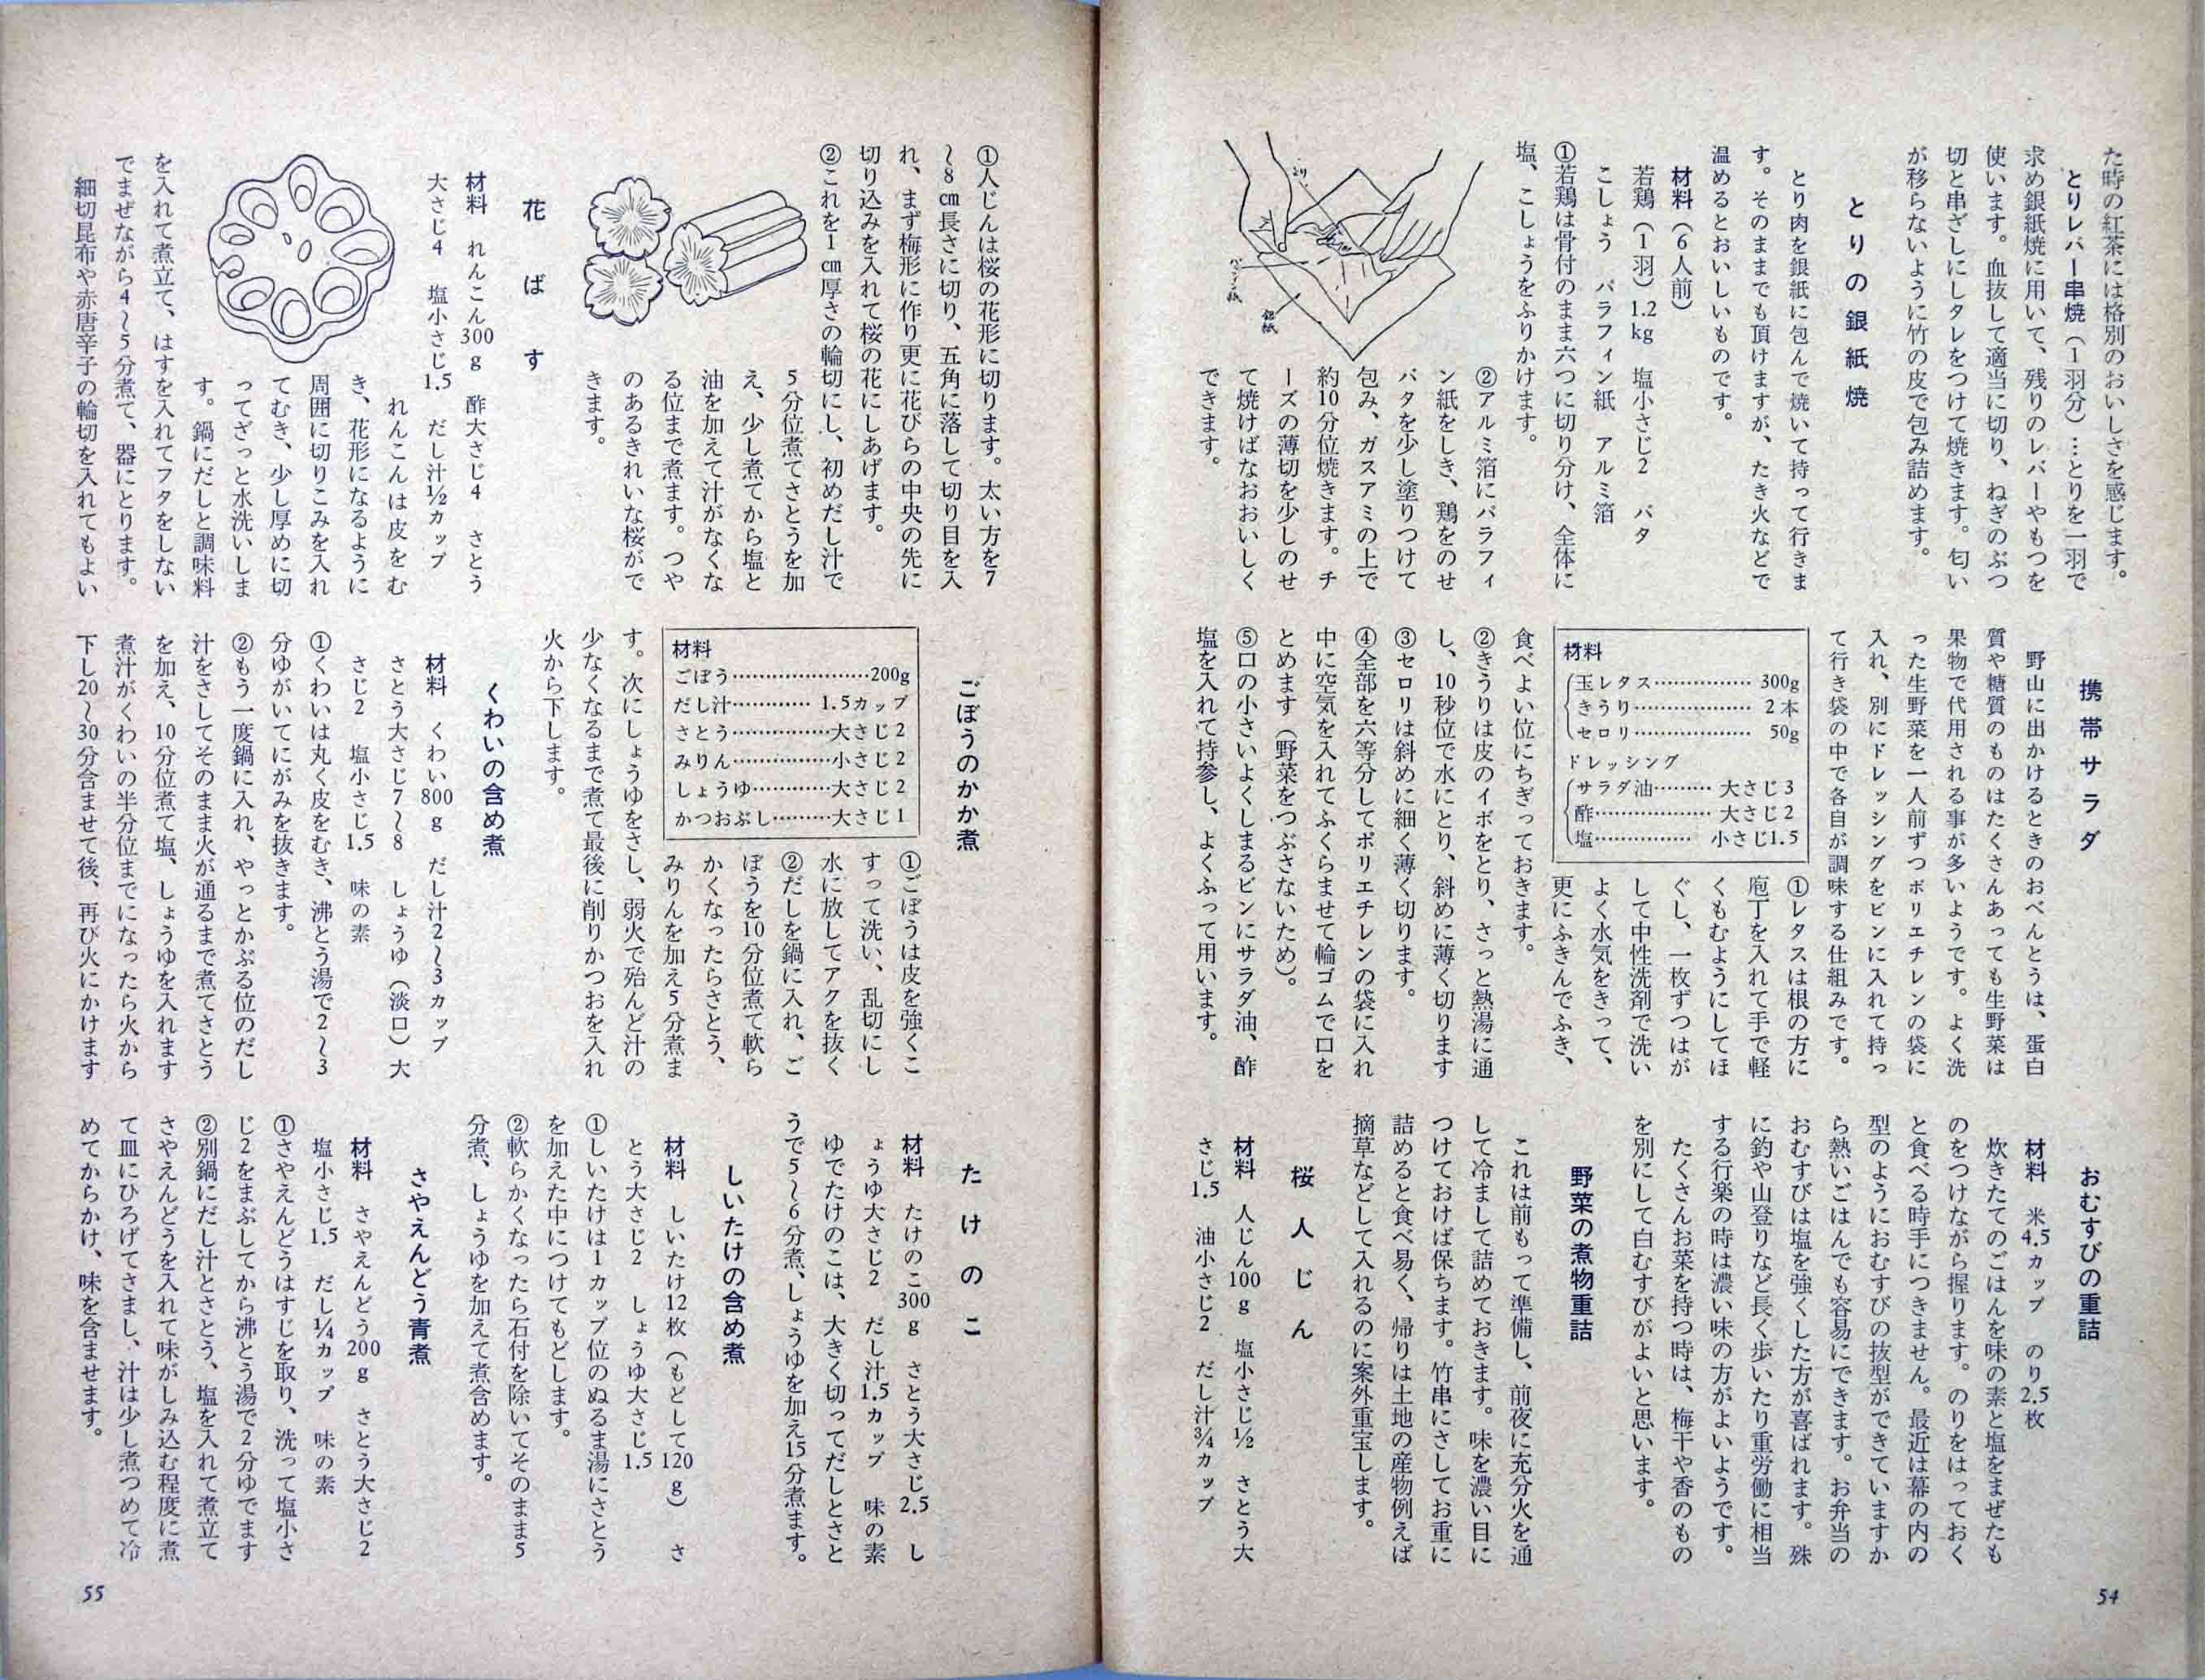 た時の紅茶には格別のおいしさを感じます。
とりレバー串焼(1羽分)…とりを一羽で
求め銀紙焼に用いて、残りのレバーやもつを
使います。血抜して適当に切り、ねぎのぶつ
切と串ざしにしタレをつけて焼きます。匂い
が移らないように竹の皮で包み詰めます。
とりの銀紙焼
とり肉を銀紙に包んで焼いて持って行きま
す。そのままでも頂けますが、たき火などで
温めるとおいしいものです。
材料(6人前)
若鶏(1羽)1.2kg 塩小さじ2 バタ
こしょう パラフィン紙 アルミ箔
①若鶏は骨付のまま六つに切り分け、全体に
塩、こしょうをふりかけます。
とり
パラフィン紙
銀紙
②アルミ箔にパラフィ
ン紙をしき、鶏をのせ
バタを少し塗りつけて
包み、ガスアミの上で
約10分位焼きます。チ
ーズの薄切を少しのせ
て焼けばなおおいしく
できます。
携帯サラダ
野山に出かけるときのおべんとうは、蛋白
質や糖質のものはたくさんあっても生野菜は
果物で代用される事が多いようです。よく洗
った生野菜を一人前ずつポリエチレンの袋に
入れ、別にドレッシングをビンに入れて持っ
て行き袋の中で各自が調味する仕組みです。
材料
玉レタス……………300g
きうり………………2本
セロリ………………50g
ドレッシング
サラダ油………大さじ3
酢………………大さじ2
塩……………小さじ1.5
①レタスは根の方に
庖丁を入れて手で軽
くもむようにしてほ
ぐし、一枚ずつはが
して中性洗剤で洗い
よく水気をきって、
更にふきんでふき、
食べよい位にちぎっておきます。
②きうりは皮のイボをとり、さっと熱湯に通
し、10秒位で水にとり、斜めに薄く切ります
③セロリは斜めに細く薄く切ります。
④全部を六等分してポリエチレンの袋に入れ
中に空気を入れてふくらませて輪ゴムで口を
とめます(野菜をつぶさないため)。
⑤口の小さいよくしまるビンにサラダ油、酢
塩を入れて持参し、よくふって用います。
おむすびの重詰
材料 米4.5カップ のり2.5枚
炊きたてのごはんを味の素と塩をまぜたも
のをつけながら握ります。のりをはっておく
と食べる時手につきません。最近は幕の内の
型のようにおむすびの抜型ができていますか
ら熱いごはんでも容易にできます。お弁当の
おむすびは塩を強くした方が喜ばれます。殊
に釣や山登りなど長く歩いたり重労働に相当
する行楽の時は濃い味の方がよいようです。
たくさんお菜を持つ時は、梅干や香のもの
を別にして白むすびがよいと思います。
野菜の煮物重詰
これは前もって準備し、前夜に充分火を通
して冷まして詰めておきます。味を濃い目に
つけておけば保ちます。竹串にさしてお重に
詰めると食べ易く、帰りは土地の産物例えば
摘草などして入れるのに案外重宝します。
桜人じん
材料 人じん100g 塩小さじ½ さとう大
さじ1.5 油小さじ2 だし汁¾カップ
54
①人じんは桜の花形に切ります。太い方を7
〜8cm長さに切り、五角に落して切り目を入
れ、まず梅形に作り更に花びらの中央の先に
切り込みを入れて桜の花にしあげます。
②これを1cm厚さの輪切にし、初めだし汁で
5分位煮てさとうを加
え、少し煮てから塩と
油を加えて汁がなくな
る位まで煮ます。つや
のあるきれいな桜がで
きます。
花ばす
材料 れんこん300g 酢大さじ4 さとう
大さじ4 塩小さじ1.5 だし汁½カップ
れんこんは皮をむ
き、花形になるように
周囲に切りこみを入れ
てむき、少し厚めに切
ってざっと水洗いしま
す。鍋にだしと調味料
を入れて煮立て、はすを入れてフタをしない
でまぜながら4〜5分煮て、器にとります。
細切昆布や赤唐辛子の輪切を入れてもよい
ごぼうのかか煮
材料
ごぼう…………………200g
だし汁…………1.5カップ
さとう……………大さじ2
みりん……………小さじ2
しょうゆ…………大さじ2
かつおぶし………大さじ1
①ごぼうは皮を強くこ
すって洗い、乱切にし
水に放してアクを抜く
②だしを鍋に入れ、ご
ぼうを10分位煮て軟ら
かくなったらさとう、
みりんを加え5分煮ま
す。次にしょうゆをさし、弱火で殆んど汁の
少なくなるまで煮て最後に削りかつおを入れ
火から下します。
くわいの含め煮
材料 くわい800g だし汁2〜3カップ
さとう大さじ7〜8 しょうゆ(淡口)大
さじ2 塩小さじ1.5 味の素
①くわいは丸く皮をむき、沸とう湯で2〜3
分ゆがいてにがみを抜きます。
②もう一度鍋に入れ、やっとかぶる位のだし
汁をさしてそのまま火が通るまで煮てさとう
を加え、10分位煮て塩、しょうゆを入れます
煮汁がくわいの半分位までになったら火から
下し20〜30分含ませて後、再び火にかけます
たけのこ
材料 たけのこ300g さとう大さじ2.5 し
ょうゆ大さじ2 だし汁1.5カップ 味の素
ゆでたけのこは、大きく切ってだしとさと
うで5〜6分煮、しょうゆを加え15分煮ます。
しいたけの含め煮
材料 しいたけ12枚(もどして120g) さ
とう大さじ2 しょうゆ大さじ1.5
①しいたけは1カップ位のぬるま湯にさとう
を加えた中につけてもどします。
②軟らかくなったら石付を除いてそのまま5
分煮、しょうゆを加えて煮含めます。
さやえんどう青煮
材料 さやえんどう200g さとう大さじ2
塩小さじ1.5 だし¼カップ 味の素
①さやえんどうはすじを取り、洗って塩小さ
じ2をまぶしてから沸とう湯で2分ゆでます
②別鍋にだし汁とさとう、塩を入れて煮立て
さやえんどうを入れて味がしみ込む程度に煮
て皿にひろげてさまし、汁は少し煮つめて冷
めてからかけ、味を含ませます。
55